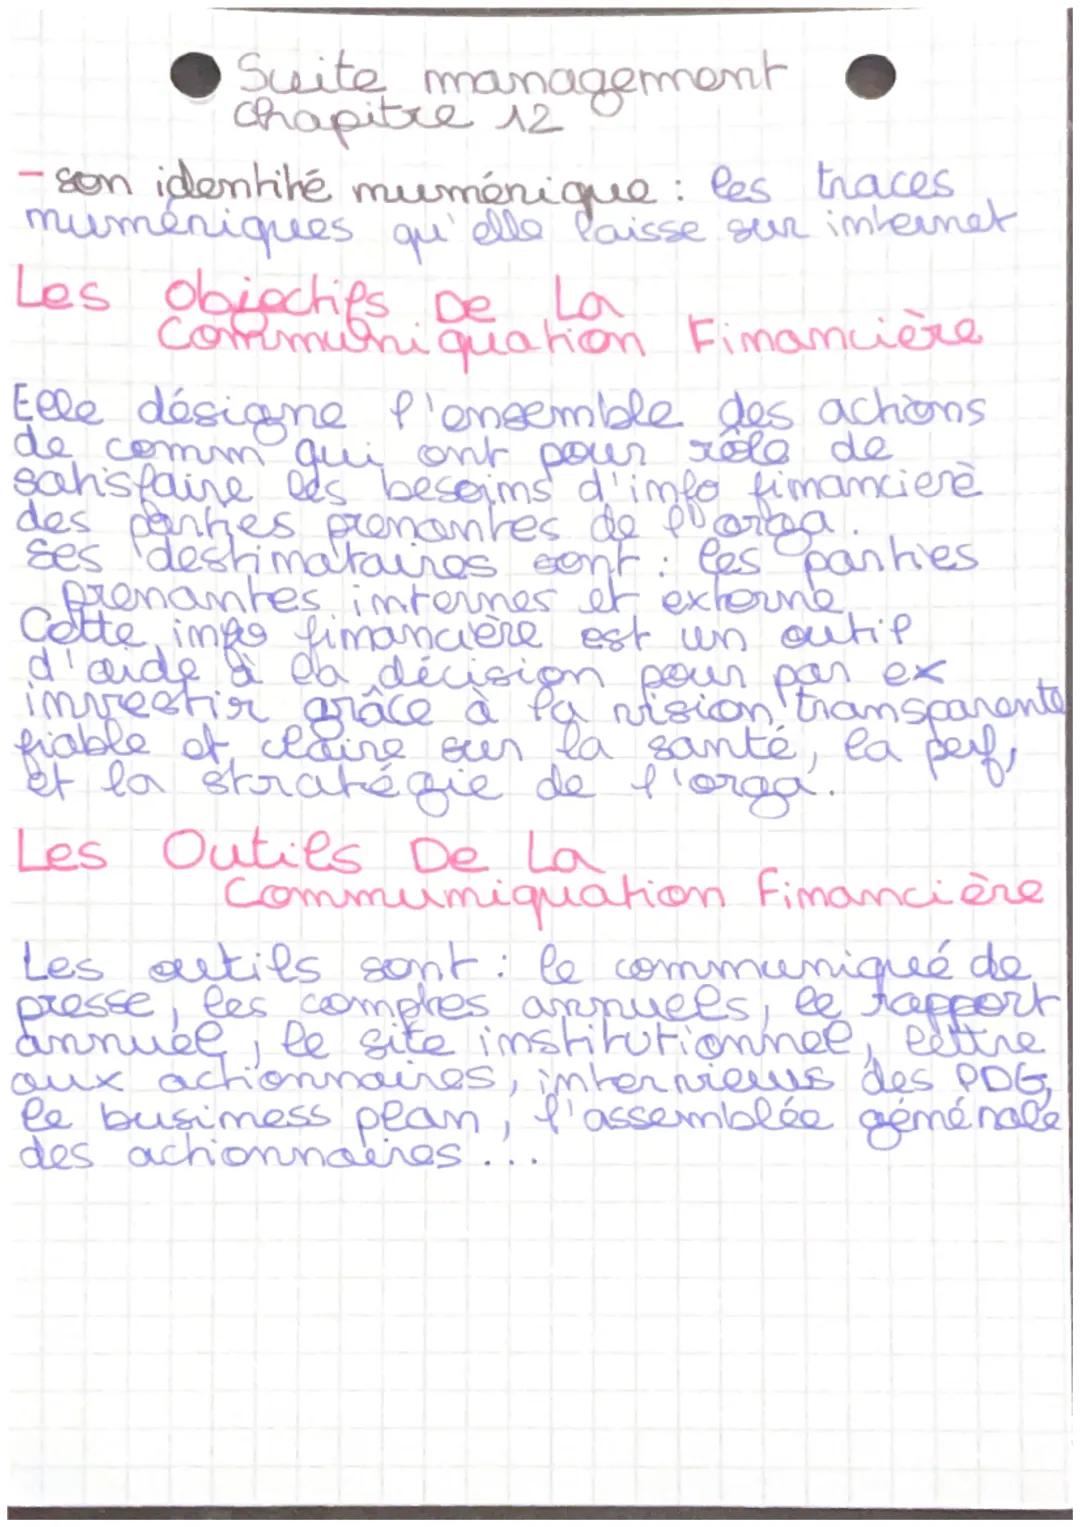 Suite management
chapitre 12
- son identité numérique : les traces
numériques qu'elle laisse sur internet
Les objectifs De La
Communiquation Financière
Elle désigne l'ensemble des actions
de comm qui ont pour rôle de
satisfaire les besoins d'info financière
des parties prenantes de l'orga.
Ses destinataires sont : les parties
prenantes internes et externe
Cette info financière est un outil
d'aide à la décision pour par ex
investir grâce à la vision transparente
fiable et claire sur la santé, la perf,
et la stratégie de l'orga.
Les Outils De La
Communiquation Financière
Les outils sont : le communiqué de
presse, les comptes annuels, le rapport
annuel, le site institutionnel, lettre
aux actionnaires, interviews des PDG,
le business plan, l'assemblée générale
des actionnaires...